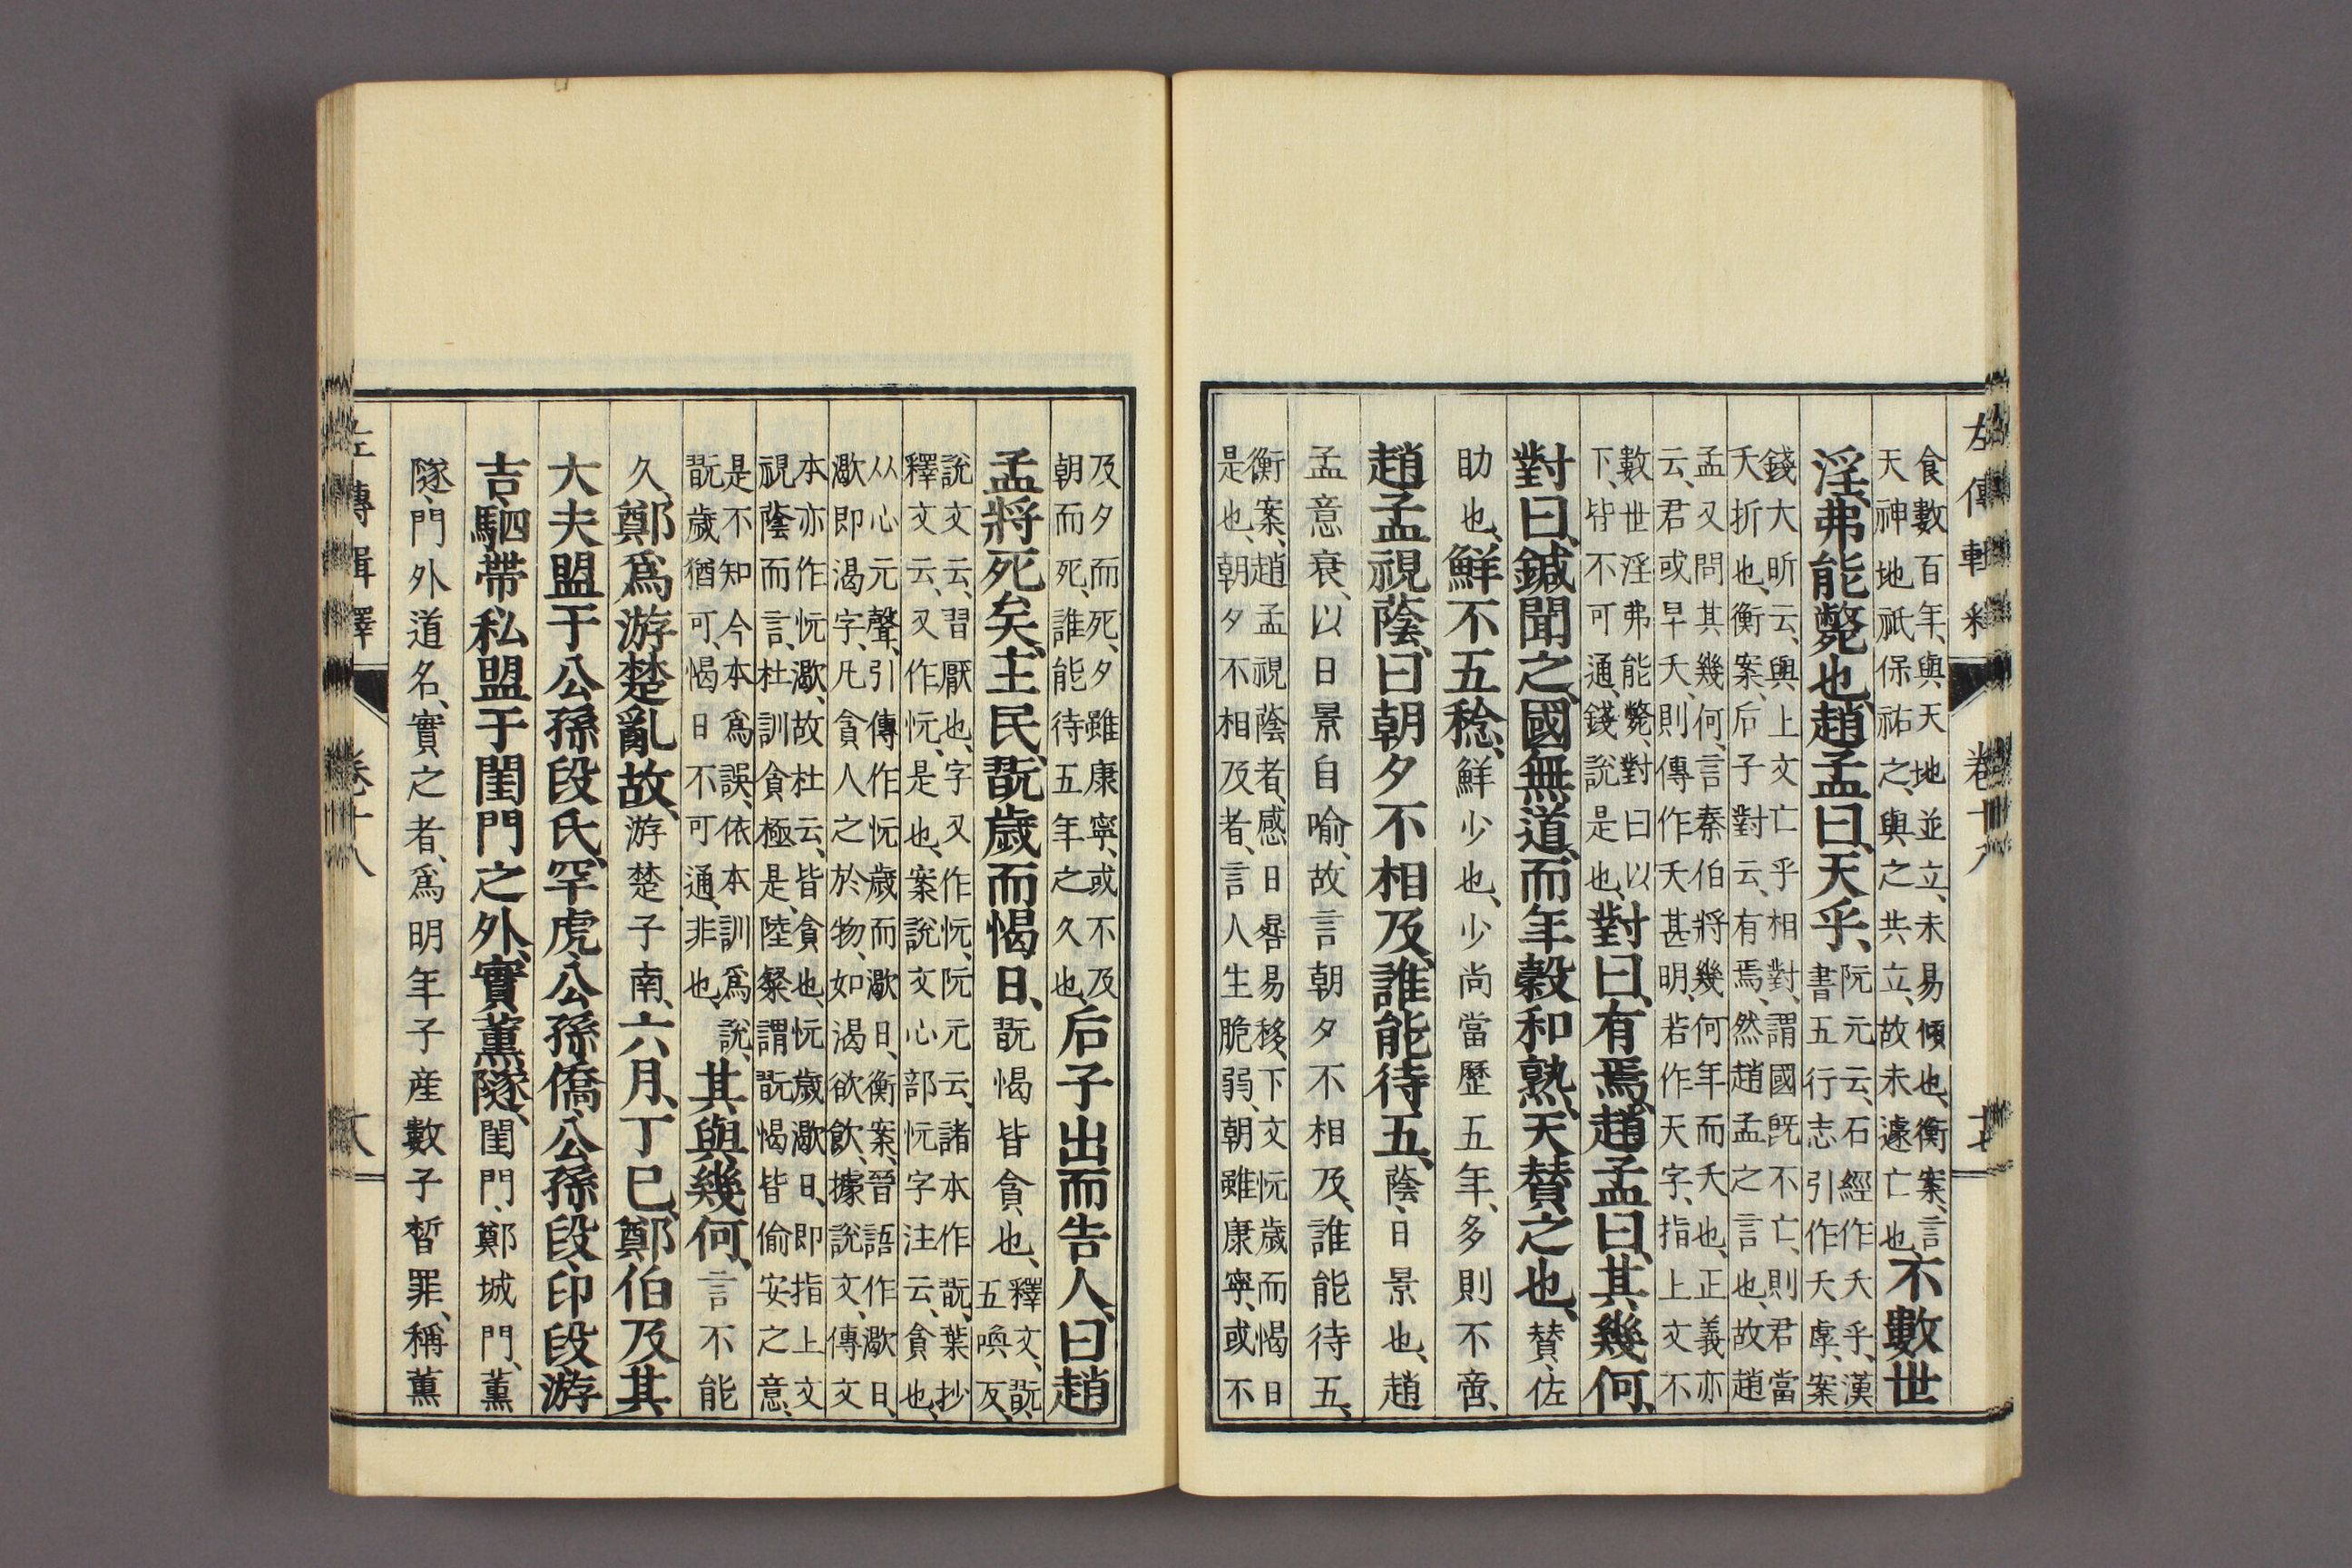 左傳輯釋 卷十八 十七
食數百年、與天地並立、未易傾也、衡案、言
天神地祇保祐之、與之共立、故未遽亡也、不數世
淫、弗能斃也、趙孟曰、天乎、阮元云、石經作夭乎、漢
書五行志引作夭虖、案
錢大昕云、與上文亡乎相對、謂國旣不亡、則君當
夭折也、衡案、后子對云、有焉、然趙孟之言也、故趙
孟又問其幾何、言秦伯將幾何年而夭也、正義亦
云、君或早夭、則傳作夭甚明、若作天字、指上文不
數世淫弗能斃、對曰以
下、皆不可通、錢說是也、對曰、有焉、趙孟曰、其幾何、
對曰、鍼聞之、國無道、而年穀和熟、天賛之也、賛、佐
助也、鮮不五稔、鮮少也、少尚當歷五年、多則不啻、
趙孟視蔭、曰朝夕不相及、誰能待五、蔭、日景也、趙
孟意衰、以日景自喻、故言朝夕不相及、誰能待五、
衡案、趙孟視蔭者、感日晷易移、下文忨歲而愒日
是也、朝夕不相及者、言人生脆弱、朝雖康寧、或不
及夕而死、夕雖康寧、或不及
朝而死、誰能待五年之久也、后子出而告人、曰趙
孟將死矣、主民、翫歲而愒日、翫愒皆貪也、釋文、翫、
五喚反、
說文云、習厭也、字又作忨、阮元云、諸本作翫、葉抄
釋文云、又作忨、是也、案說文心部忨字注云、貪也、
从心元聲、引傳作忨歲而㵣日、衡案、晉語作㵣日、
㵣即渴字、凡貪人之於物、如渴欲飮、據說文、傳文
本亦作忨㵣、故杜云、皆貪也、忨歲㵣日、即指上文
視蔭而言、杜訓貪極是、陸粲謂翫愒皆偷安之意、
是不知今本爲誤、依本訓爲說、
翫歲猶可、愒日不可通、非也、其與幾何、言不能
久、鄭爲游楚亂故、游楚子南、六月、丁巳、鄭伯及其
大夫盟于公孫段氏、罕虎、公孫僑、公孫段、印段、游
吉、駟帶、私盟于閨門之外、實薰隧、閨門、鄭城門、薰
隧、門外道名、實之者、爲明年子産數子晳罪、稱薰
左傳輯釋 卷十八